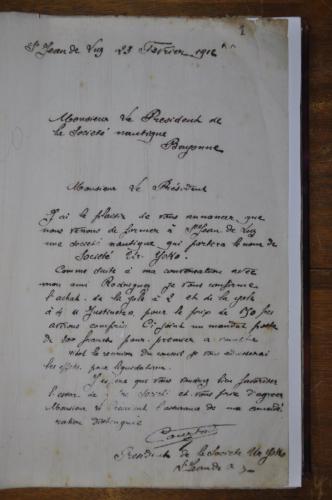 1
St Jean de Luz 23 Février 1912
Monsieur le Président de
la Société nautique
Bayonne
Monsieur le Président
J'ai le plaisir de vous annoncer que
nous venons de former à St Jean de Luz
une société nautique qui portera le nom de
Société Ur Yoko.
Comme suite à ma conversation avec
mon ami Rodriguez je vous confirme
l'achat de la Yole à 2 et de la yole
à 4 pour le prix de 150 frs
avirons compris. Ci-joint un mandat poste
de 100 francs pour premier a
la réunion du conseil je vous
pour liquidation.
que vous voudrez bien favoriser
l'essor de Société et vous prie d'agréer
Monsieur le Président l'assurance de ma considé
ration distinguée
Président de la Société Ur Yoko
St Jean de